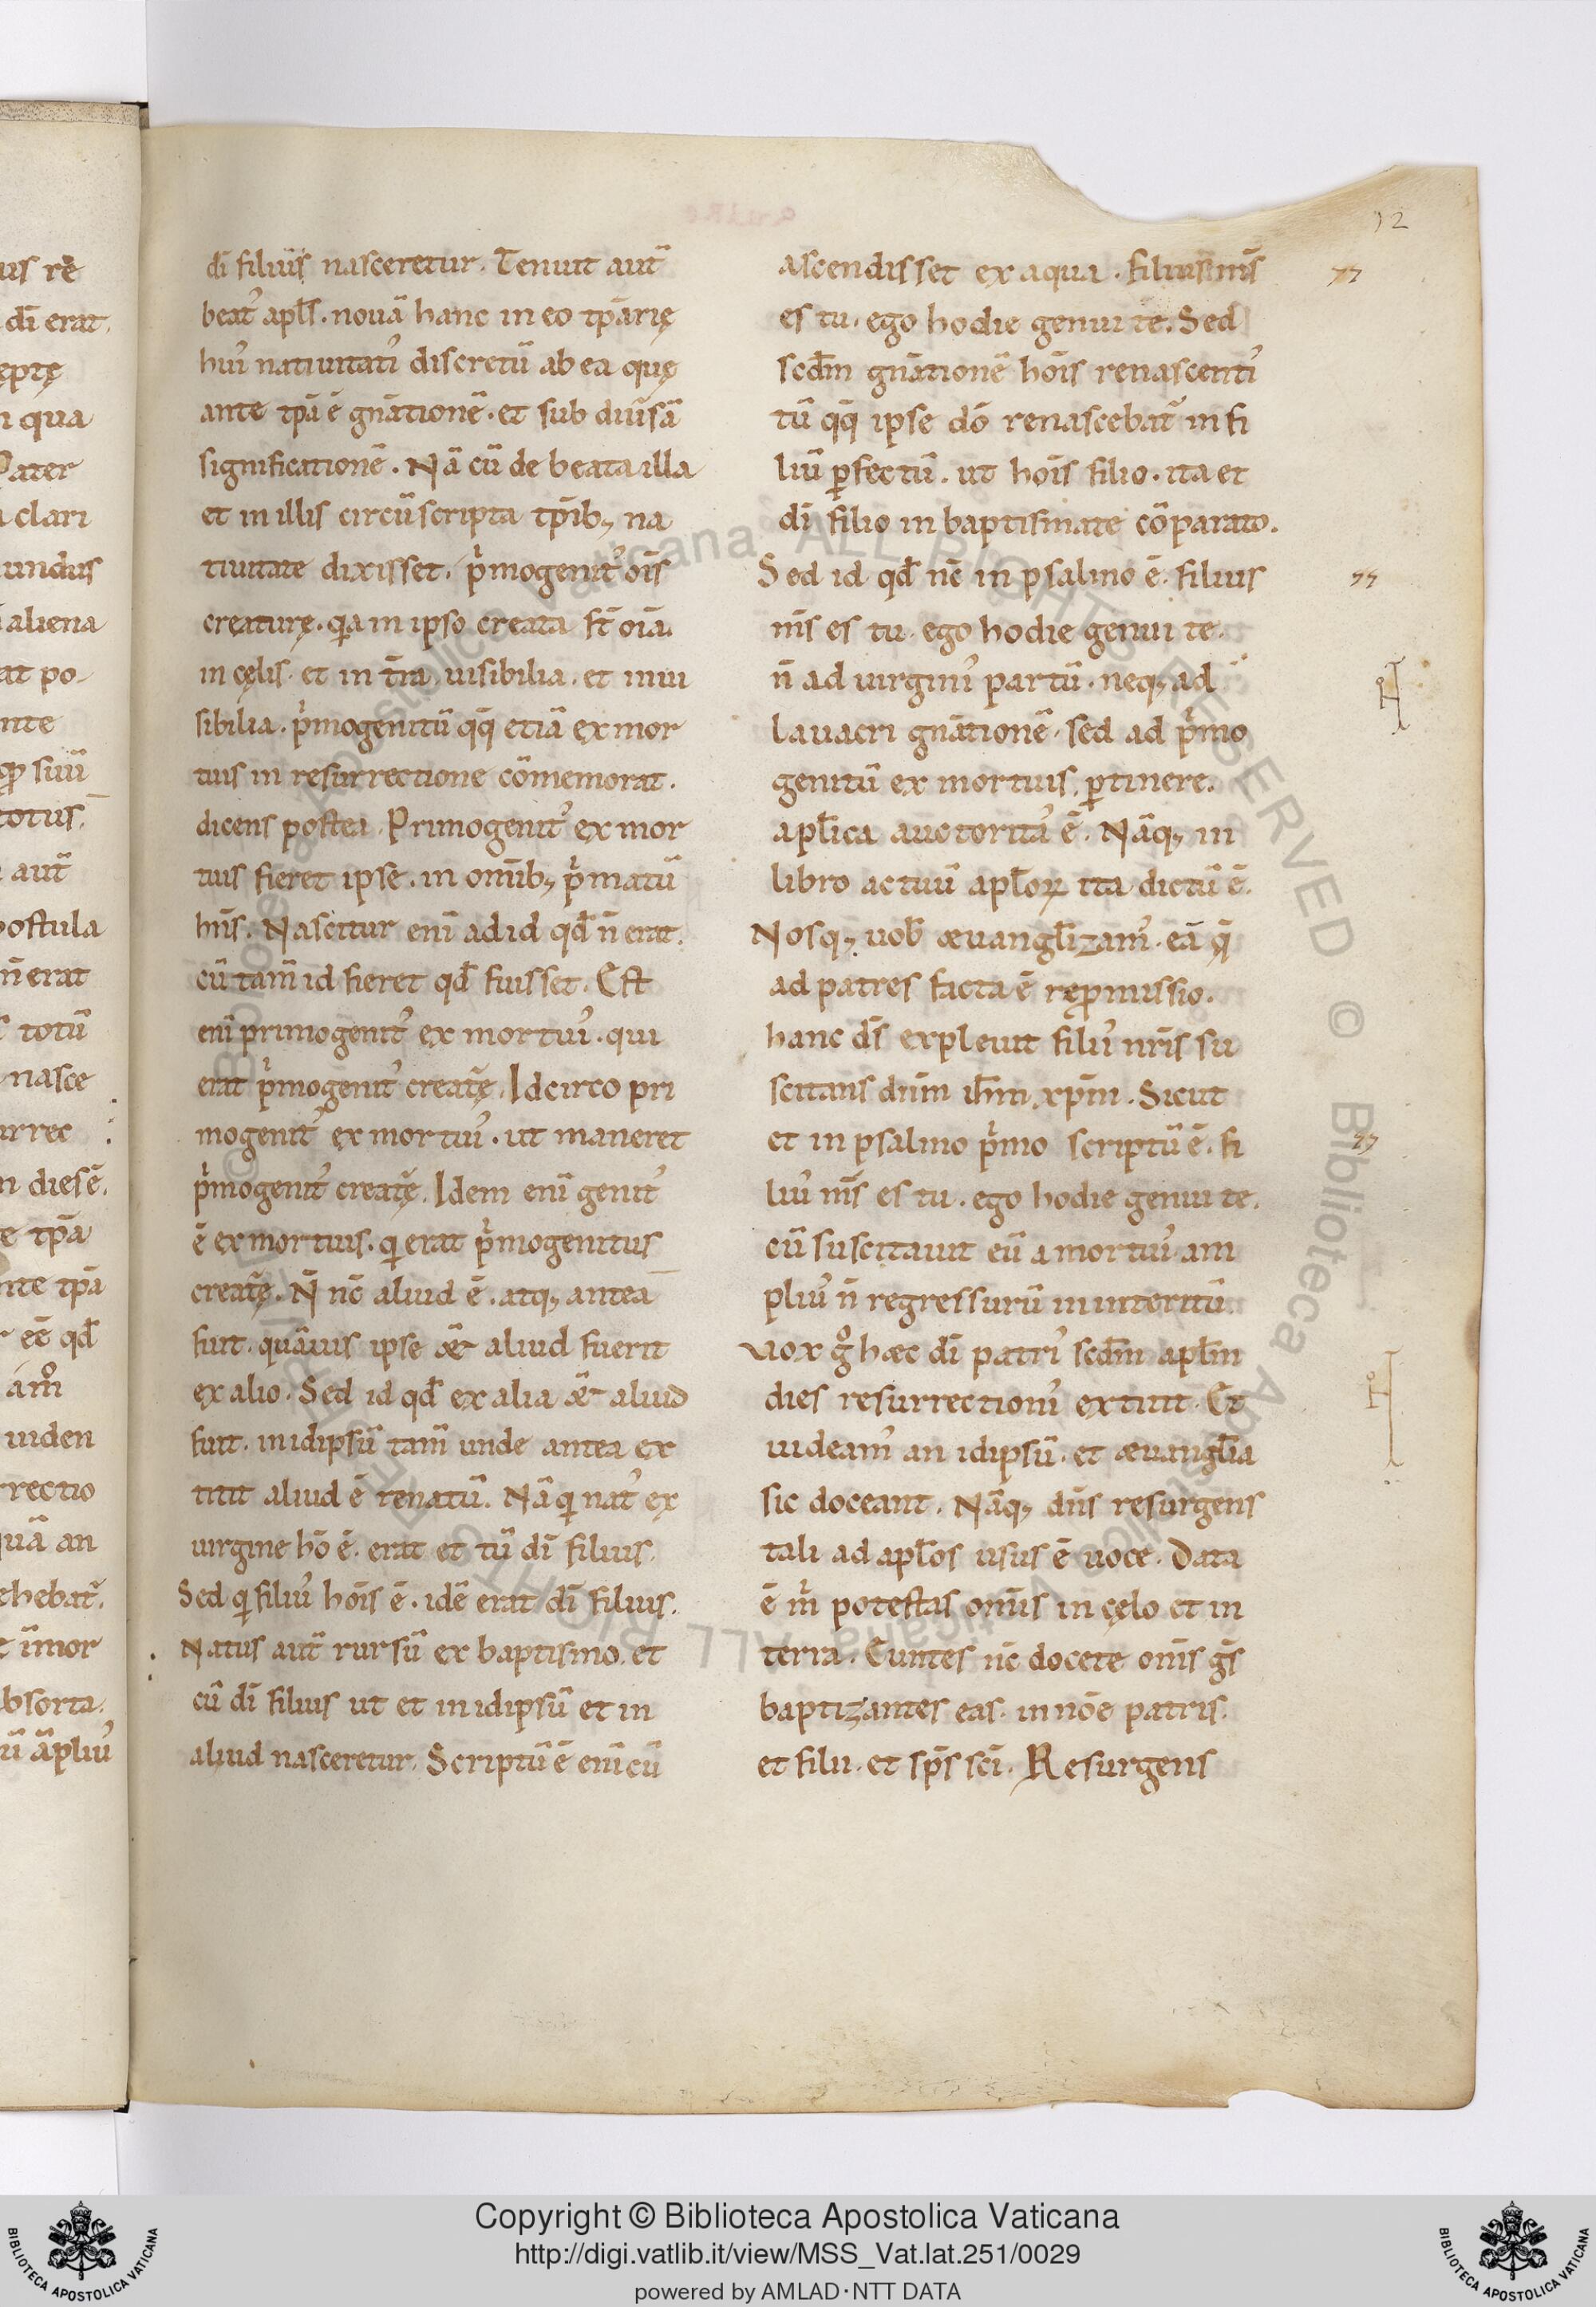 12
di᷃ filius nasceretur. Tenuit aut̃
beat᾽ apl̃s. nouā hanc in eo tp̄arię
hui᾽ natiuitati᾽ discretū ab ea quę
ante tp̄a ē gn̄ationē. et sub diuũsā
significationē. Nā cū de beata illa
et in illis circūscripta tp̄ib; na
tiuitate dixisset. p̓mogenit᾽ oīs
creaturę. qa in ipso creata st̄ oīa.
in cęlis. et in tr̄a. uisibilia. et inui
sibilia. p̓mogenitū qq̄ etiā ex mor
tuis in resurrectione cōmemorat.
dicens postea. Primogenit᾽ ex mor
tuis fieret ipse. in om̄ib; p̓matū
hñs. Nascitur enī ad id qđ ñ erat.
cū tam̄ id fieret qđ fuisset. Est
enī primogenit᾽ ex mortui᾽. qui
erat p̓mogenit᾽ creat̃ę. Idcirco pri
mogenit᾽ ex mortui᾽. ut maneret
p̓mogenit᾽ creat̃ę. Idem enī genit᾽
ē ex mortuis. q̇ erat p̓mogenitus
creat̃ę. N̄ nc̄ aliud ē. atq; antea
fuit. quāuis ipse æ̃ aliud fuerit
ex alio. Sed id qđ ex alia æ̃ aliud
fuit. in idipsū tam̄ unde antea ex
titit aliud ē renatū. Nā q̇ nat᾽ ex
uirgine hō ē. erat et tū dī filius.
Sed q̇ filiu᾽ hōis ē. idē erat dī filius.
Natus aut̃ rursū ex baptismo. et
cū dī filius ut et in idipsū et in
aliud nasceretur. Scriptū ē enī cū
ascendisset ex aqua. filius m̄s
es tu. ego hodie genui te. Sed
scđm gn̄ationē hōis renascenti᾽
tū qq̄ ipse dō renascebat̃ in fi
liū ꝑfectū. ut hōis filio. ita et
dī filio in baptismate cōparato.
Sed id qđ nc̄ in psalmo ē. filius
m̄s es tu. ego hodie genui te.
ñ ad uirgini᾽ partū. neq; ad
lauacri gn̄ationē. sed ad p̓mo
genitū ex mortuis. ꝑtinere.
apl̃ica auctorita᾽ ē. Nāq; in
libro actuū apl̃oꝝ ita dictū ē.
Nosq; uob̃ æuangl̃izam᾽. eā q̄
ad patres facta ē reꝓmissio.
hanc dī expleuit filiu᾽ nr̄is su
scitans dn̄m ih̄m xp̄m. Sicut
et in psalmo p̓mo scriptū ē. fi
liu᾽ m̄s es tu. ego hodie genui te.
cū suscitauit eū a mortui᾽ am
pliu᾽ ñ regressurū in interitū
uox g̊ hæc dī patri᾽ scđm apl̃m
dies resurrectioni᾽ extitit. Et
uideam᾽ an idipsū. et æuangl̃ia
sic doceant. Nāq; dn̄s resurgens
tali ad apl̃os usus ē uoce. Data
ē m̓ potestas om̄is in cęlo et in
terra. Euntes nc̄ docete om̄s gs̄
baptizantes eas. in nōe patris.
et filii. et sp̄s sc̄i. Resurgens
Copyright © Biblioteca Apostolica Vaticana
http://digi.vatlib.it/view/MSS_Vat.lat.251/0029
powered by AMLAD·NTT DATA